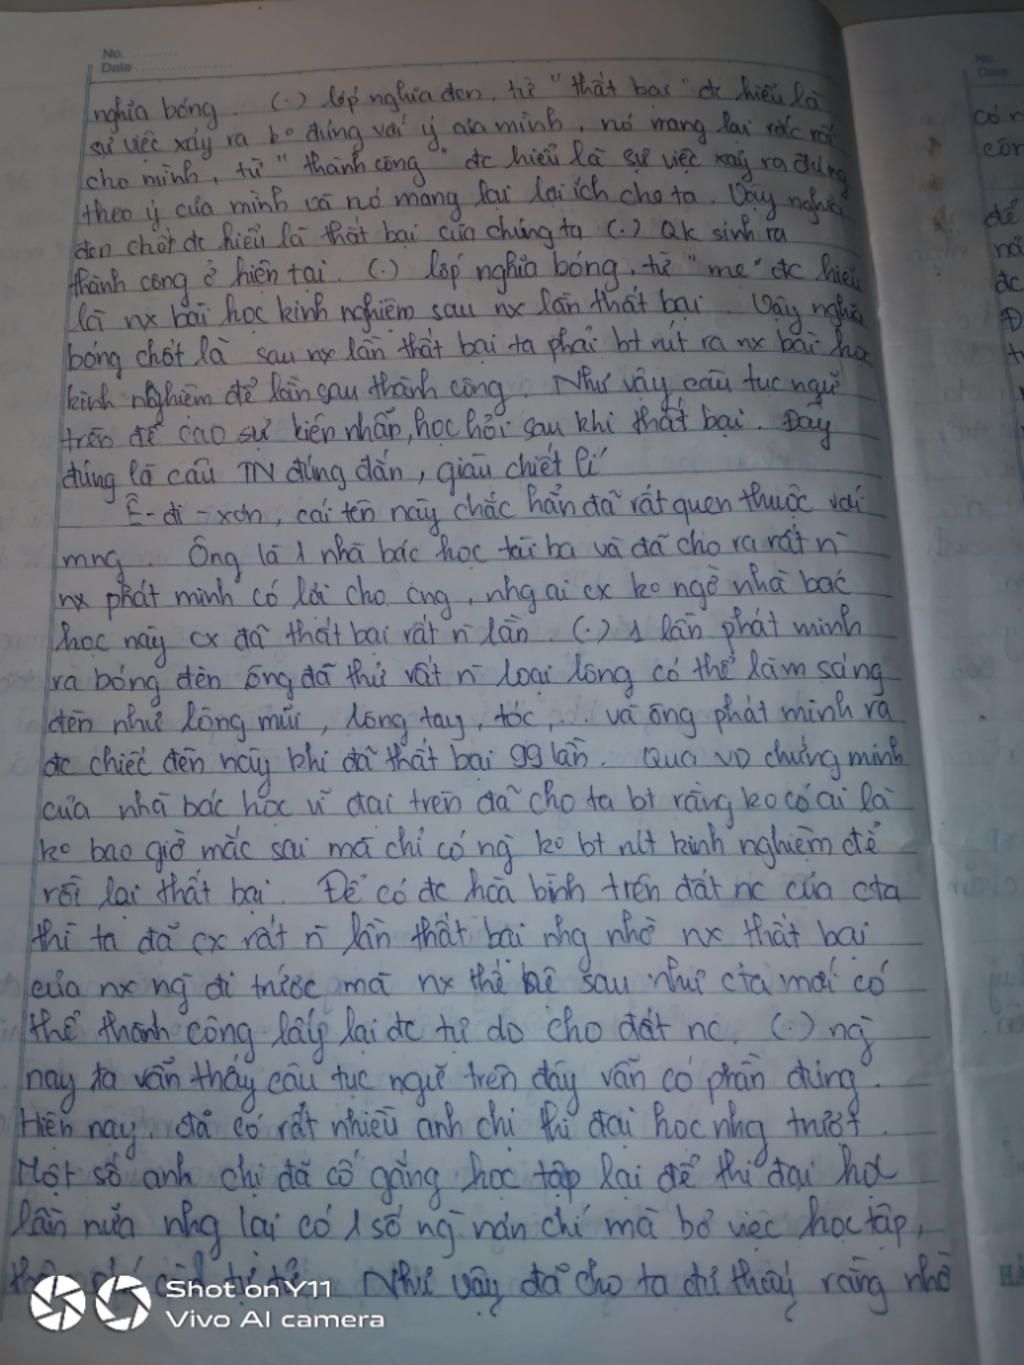 No.
Date
nghĩa bóng. (.) lớp nghĩa đen, từ "thất bại" đc hiểu là
sự việc xảy ra ko đúng với ý của mình, nó mang lại rắc rối
cho mình, từ "thành công" đc hiểu là sự việc xảy ra đúng
theo ý của mình và nó mang lại lợi ích cho ta. Vậy nghĩa
đen chốt đc hiểu là thất bại của chúng ta (.) Qk sinh ra
thành công ở hiện tại. (.) lớp nghĩa bóng, từ "mẹ" đc hiểu
là nx bài học kinh nghiệm sau nx lần thất bại. Vậy nghĩa
bóng chốt là sau nx lần thất bại ta phải bt rút ra nx bài học
kinh nghiệm để lần sau thành công. Như vậy câu tục ngữ
trên đề cao sự kiên nhẫn, học hỏi sau khi thất bại. Đây
đúng là câu TN đúng đắn, giàu chiết lí
Ê-đi-xơn, cái tên này chắc hẳn đã rất quen thuộc với
mng. Ông là 1 nhà bác học tài ba và đã cho ra rất n`
nx phát minh có lời cho cng, nhg ai cx ko ngờ nhà bác
học này cx đã thất bại rất n` lần. (.) 1 lần phát minh
ra bóng đèn ông đã thử rất n` loại lông có thể làm sáng
đèn như lông mũi, lông tay, tóc,... và ông phát minh ra
đc chiếc đèn này khi đã thất bại 99 lần. Qua VD chứng minh
của nhà bác học vĩ đại trên đã cho ta bt rằng ko có ai là
ko bao giờ mắc sai mà chỉ có ng` ko bt rút kinh nghiệm để
rồi lại thất bại. Để có đc hòa bình trên đất nc của cta
thì ta đã cx rất n` lần thất bại nhg nhờ nx thất bại
của nx ng` đi trước mà nx thế hệ sau như cta mới có
thể thành công lấy lại đc tự do cho đất nc. (.) ng`
nay ta vẫn thấy câu tục ngữ trên đây vẫn có phần đúng.
Hiện nay, đã có rất nhiều anh chị thi đại học nhg trượt.
Một số anh chị đã cố gắng học tập lại để thi đại học
lần nữa nhg lại có 1 số ng` nản chí mà bỏ việc học tập,
Như vậy đã cho ta thấy rằng nhờ
Shot on Y11
Vivo AI camera
No.
Date